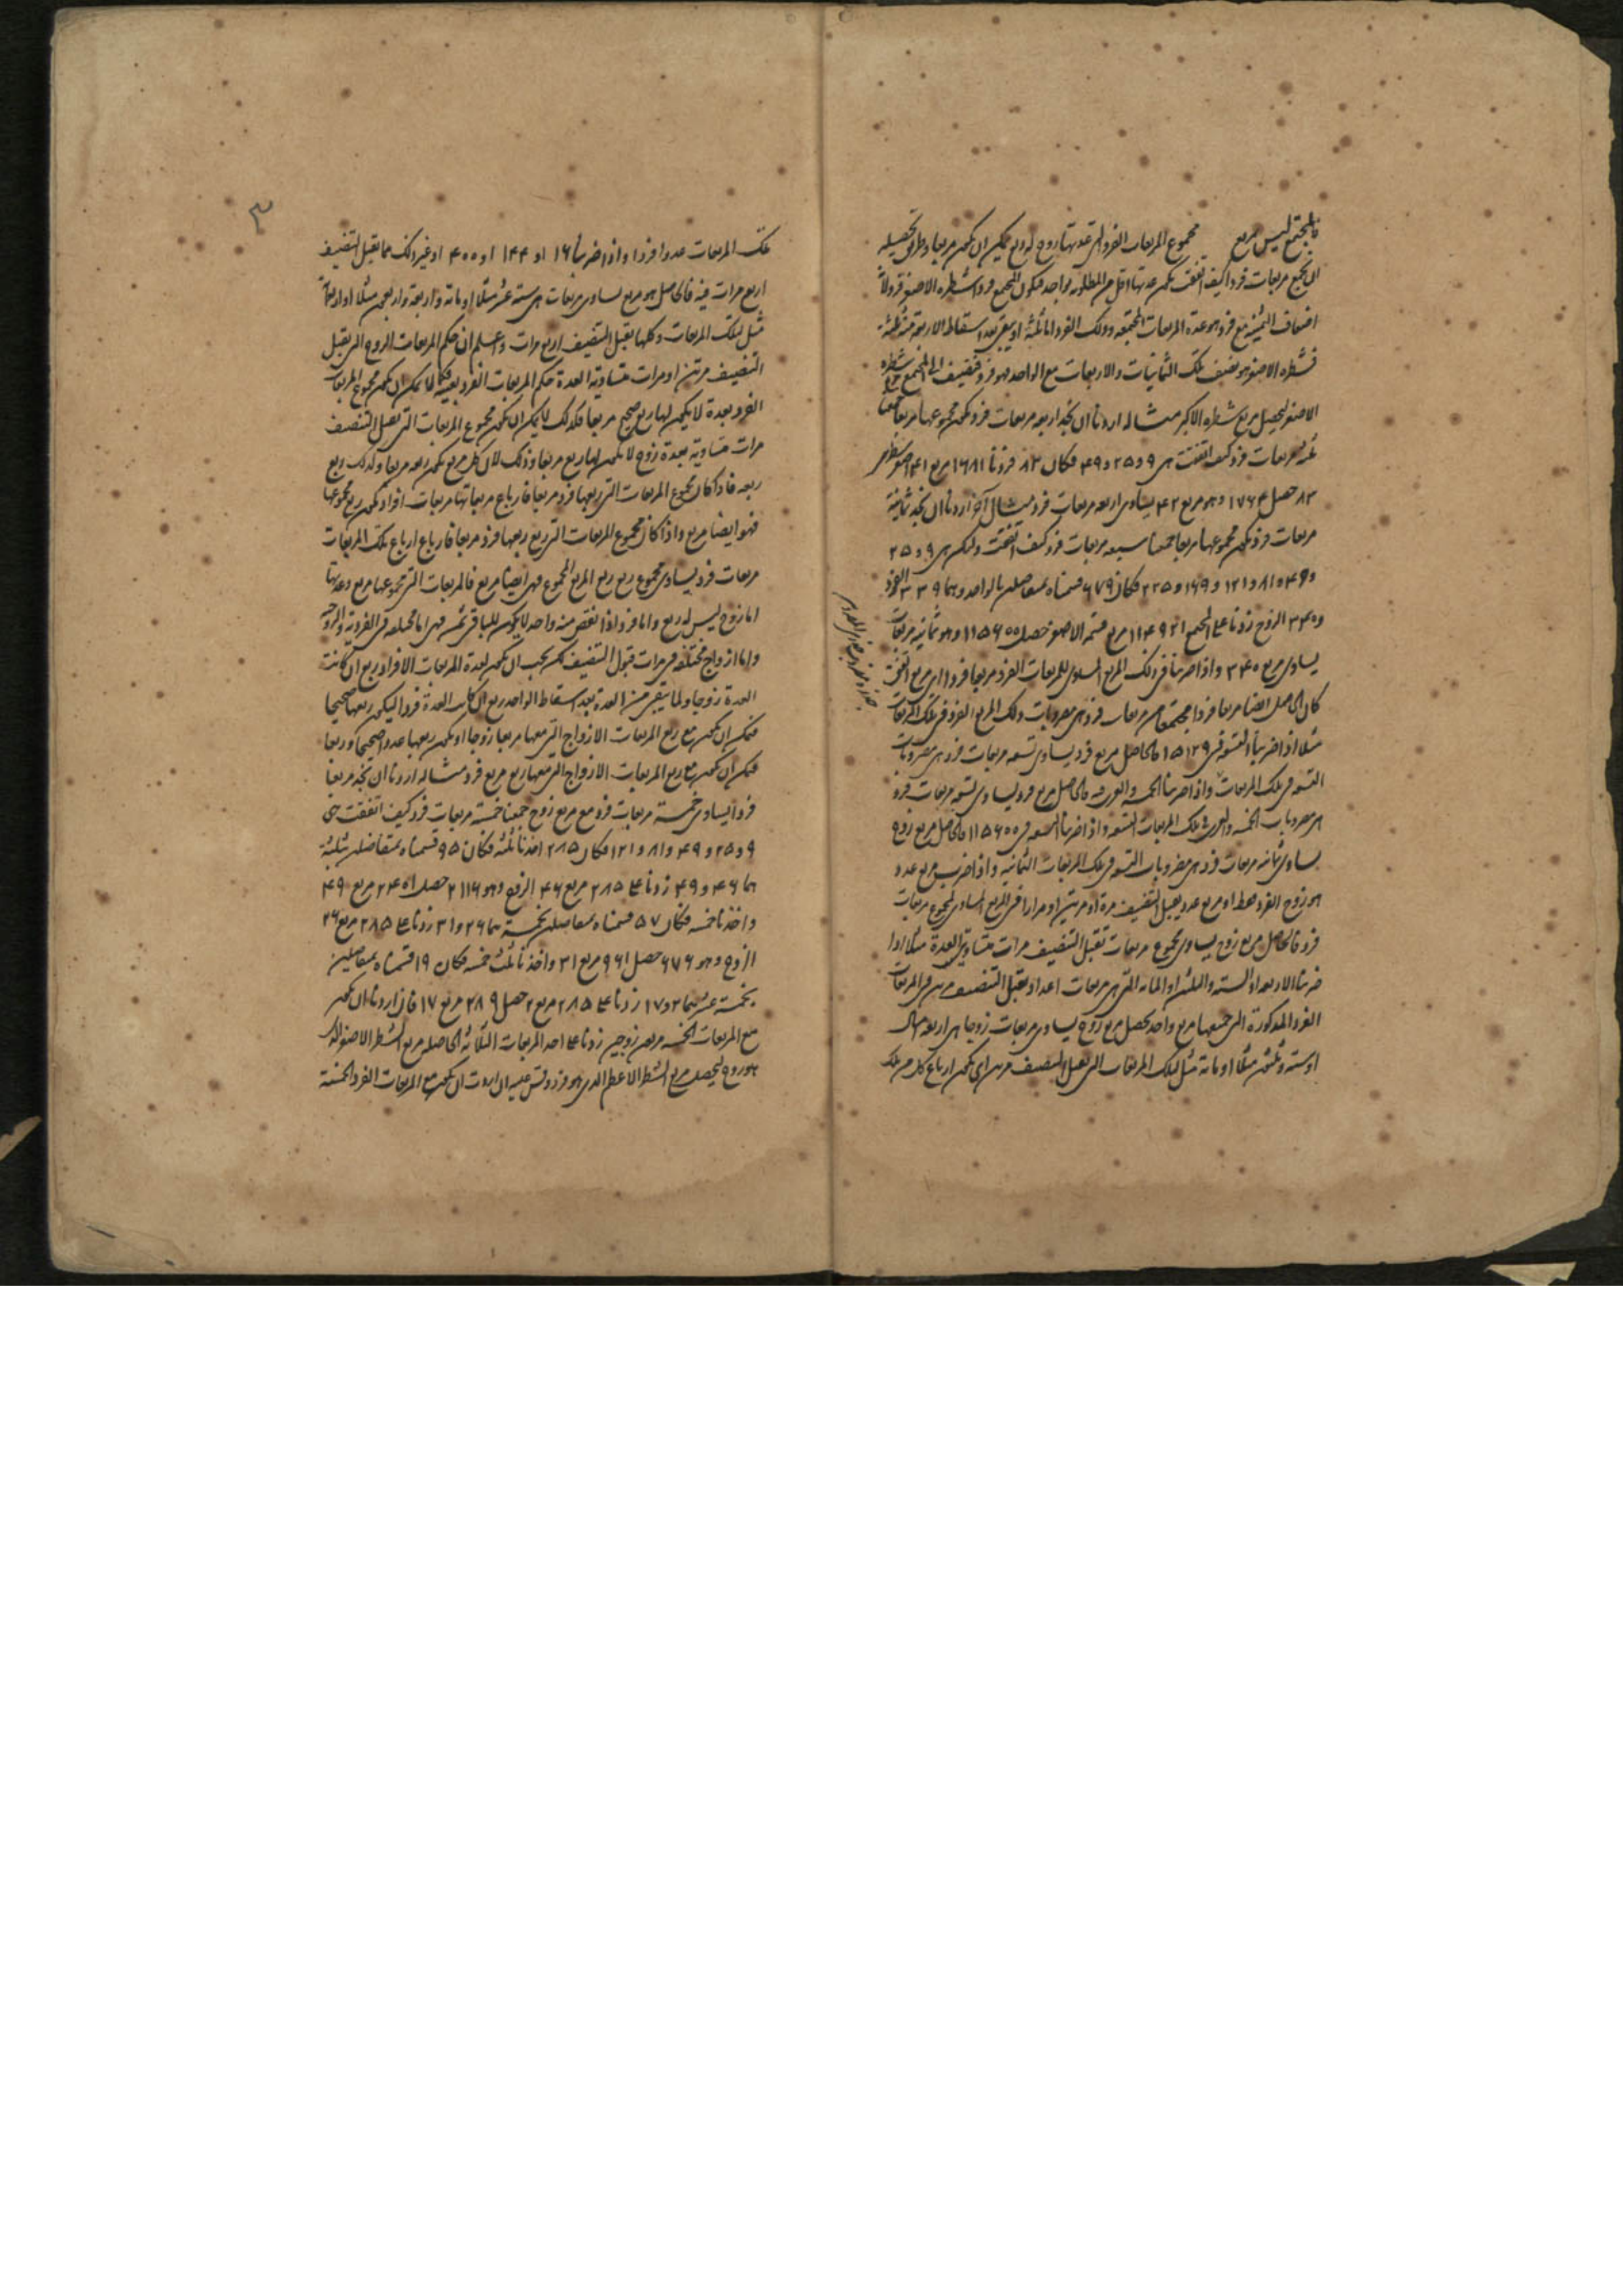 فالمجتمع ليس مربع مجموع المربعات الفرد التى عدتها زوج له ربع يمكن ان يكون مربعا وطريق تحصيله
ان نجمع مربعات فرد كيف اتفقت يكون عدتها اقل من المطلوبة بواحد فيكون المجتمع فردا شطره الاصغر
اضعاف الثمينة مع فرد هو عدة المربعات المجتمعة وذلك الفرد اما ثلثة او يبقى بعد اسقاط الاربعة منه ثلثة
فشطره الاصغر هو نصف تلك الثمانيات والاربعات مع الواحد فهو فرد فنضيف الى المجتمع مربع شطره
الاصغر ليحصل مربع شطره الاكبر مثاله اردنا ان نجد اربعة مربعات فرد يكون مجموعها مربعا جمعنا
ثلثة مربعات فرد كيف اتفقت هى ٩ و ٢٥ و ٤٩ فكان ٨٣ فزدنا ١٦٨١ مربع ٤١ اصغر شطرى
٨٣ حصل ١٧٦٤ وهو مربع ٤٢ يساوى اربعة مربعات فرد مثال آخر اردنا ان نجد ثمانية
مربعات فرد يكون مجموعها مربعا جمعنا سبعة مربعات فرد كيف اتفقت ولتكن هى ٩ و ٢٥
و ٤٩ و ٨١ و ١٢١ و ١٦٩ و ٢٢٥ فكان ٦٧٩ قسمناه بمتفاضلين بالواحد وهما ٣٣٩ الفرد
و ٣٤٠ الزوج زدنا على المجتمع ١١٤٩٢١ مربع قسمه الاصغر حصل ١١٥٦٠٠ وهو ثمانية مربعات
يساوى مربع ٣٤٠ واذا ضربنا فى ذلك المربع المساوى للمربعات الفرد مربعا فردا اى مربع اتفق
كان الحاصل ايضا مربعا فردا مجتمعا من مربعات فرد هى مضروبات ذلك المربع الفرد فى تلك المربعات
مثلا اذا ضربنا التسعة فى ١٥١٢٩ فالحاصل مربع فرد يساوى تسعة مربعات فرد هى مضروبات
التسعة فى تلك المربعات واذا ضربنا الخمسة والعشرين فيه فالحاصل مربع فرد يساوى تسعة مربعات فرد
هى مضروبات الخمسة والعشرين فى تلك المربعات التسعة واذا ضربنا التسعة فى ١١٥٦٠٠ فالحاصل مربع زوج
يساوى ثمانية مربعات فرد هى مضروبات التسعة فى تلك المربعات الثمانية واذا ضرب مربع عدد
هو زوج الفرد فقط او مربع عدد يقبل التنصيف مرة او مرتين او مرارا فى المربع المساوى لمجموع مربعات
فرد فالحاصل مربع زوج يساوى مجموع مربعات تقبل التنصيف مرات متساوية العدة مثلا اذا
ضربنا الاربعة او الستة والثلثين او المائة التى هى مربعات اعداد يقبل التنصيف مرة فى المربعات
الفرد المذكورة التى جميعها مربع واحد يحصل مربع زوج يساوى مربعات زوجا هى اربعة امثال
او ستة وثلثون مثلا او مائة مثل لتلك المربعات التى تقبل التنصيف مرتين اى يكون ارباع كل من تلك
تلك المربعات عددا فردا واذا ضربنا ١٦ او ١٤٤ او ٤٠٠ او غير ذلك مما يقبل التنصيف
اربع مرات فيه فالحاصل هو مربع يساوى مربعات هى ستة عشر مثلا او مائة واربعة واربعون مثلا او اربعمائة
مثل لتلك المربعات وكلها يقبل التنصيف اربع مرات واعلم ان حكم المربعات الزوج التى يقبل
التنصيف مرتين او مرات متساوية العدة حكم المربعات الفرد بعينه فكما لا يمكن ان يكون مجموع المربعات
الفرد بعدة لا يكون لها ربع صحيح مربعا فكذلك لا يمكن ان يكون مجموع المربعات التى تقبل التنصيف
مرات متساوية بعدة زوج لا يكون لها ربع مربعا وذلك لان كل مربع يكون ربعه مربعا وكذلك ربع
ربعه فاذا كان مجموع المربعات التى ربعها فرد مربعا فارباع مربعاتها مربعات افراد يكون ربع مجموعها
فهو ايضا مربع واذا كان مجموع المربعات التى ربع ربعها فرد مربعا فارباع ارباع تلك المربعات
مربعات فرد يساوى مجموع ربع ربع المربع المجموع فهى ايضا مربع فالمربعات التى مجموعها مربع وعدتها
اما زوج ليس له ربع واما فرد اذا نقص منه واحد لا يكون للباقى ثمن فهى اما مختلفة فى الفردية والزوجية
واما ازواج مختلفة فى مرات قبول التنصيف لكن يجب ان يكون لعدة المربعات الافراد ربع ان كانت
العدة زوجا ولما يبقى من العدة بعد اسقاط الواحد ربع ان كانت العدة فردا ليكون ربعها صحيحا
فيمكن ان يكون مع ربع المربعات الازواج التى معها مربعا زوجا او يكون ربعها عددا صحيحا وربعا
فيمكن ان يكون مع ربع المربعات الازواج التى معها ربع مربع فرد مثاله اردنا ان نجد مربعا
فردا يساوى خمسة مربعات فرد مع مربع زوج جمعنا خمسة مربعات فرد كيف اتفقت هى
٩ و ٢٥ و ٤٩ و ٨١ و ١٢١ فكان ٢٨٥ اخذنا ثلثه فكان ٩٥ قسمناه بمتفاضلين بثلثة
هما ٤٦ و ٤٩ زدنا على ٢٨٥ مربع ٤٦ الزوج وهو ٢١١٦ حصل ٢٤٠١ مربع ٤٩
واخذنا خمسه فكان ٥٧ قسمناه بمتفاضلين بخمسة هما ٢٦ و ٣١ زدنا على ٢٨٥ مربع ٢٦
الزوج وهو ٦٧٦ حصل ٩٦١ مربع ٣١ واخذنا ثلث خمسه فكان ١٩ قسمناه بمتفاضلين
بخمسة عشر هما ٢ و ١٧ زدنا على ٢٨٥ مربع ٢ حصل ٢٨٩ مربع ١٧ فان اردنا ان يكون
مع المربعات الخمسة مربعين زوجين زدنا على احد المربعات الثلاثة الحاصلة مربع الشطر الاصغر الذى
هو زوج ليحصل مربع الشطر الاعظم الذى هو فرد وقس عليه ان اردت ان يكون مع المربعات الفرد الخمسة